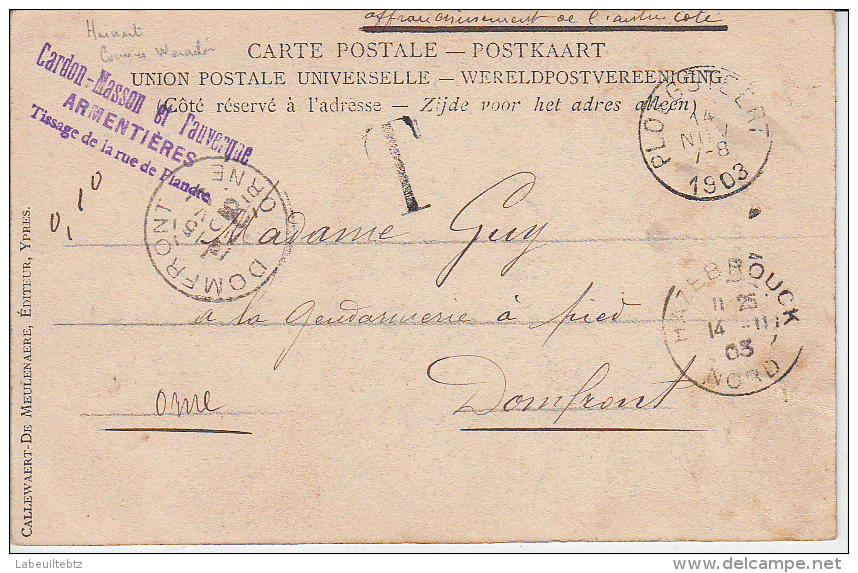 affranchissement de l'autre coté
Hainaut
CARTE POSTALE — POSTKAART
UNION POSTALE UNIVERSELLE — WERELDPOSTVEREENIGING
(Côté réservé à l'adresse — Zijde voor het adres alleen)
Cardon-Masson et Fauvergue
ARMENTIÈRES
Tissage de la rue de Flandre
T
PLOEGSTEERT
14
NOV
7-8
1903
0,10
DOMFRONT
ORNE
15
Madame Guy
HAZEBROUCK
14
03
NORD
a la Gendarmerie à pied
Orne Domfront
CALLEWAERT-DE MEULENAERE, ÉDITEUR, YPRES.
Labeuiltebtz
delcampe.net